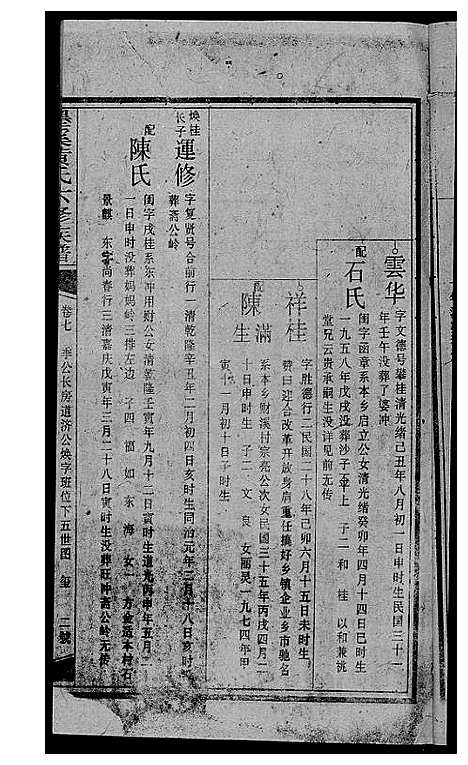 雲华
字文德号攀桂清光绪己丑年八月初一日申时生民国三十一
年壬午没葬了婆冲
配
石氏
闺字函章系本乡启立公女清光绪癸卯年四月十四日巳时生
一九五八年戊戌没葬沙子平上 子二 和 桂 以和兼祧
堂兄云贵承嗣生没详见前无传
祥桂
字胜德行二民国二十八年己卯六月十五日未时生
赞曰迎合改革开放身肩重任搞好乡镇企业乡市驰名
配
陳 满
生
系本乡财溪村宗亮公次女民国三十五年丙戌四月二
十日申时生 子二 文 良 女丽灵一九七四年甲
寅十一月初十日子时生
焕桂
长子
運修
字复贤号合前行一清乾隆辛丑年二月初四日亥时生同治元年三月十八日亥时
葬斋公岭
配
陳氏
闺字戌桂系东冲用财公女清乾隆壬寅年九月十二日寅时生道光丙申年五月二
一日申时没葬妈妈岭三排左边 子四 福 如 东 海 女一 方金适本村石
景麒 东字尚春行三清嘉庆戊寅年三月二十八日寅时生没葬旺冲斋公岭无传
氏六修族譜
卷七 季公长房道济公焕字班位下五世图 玺 二號